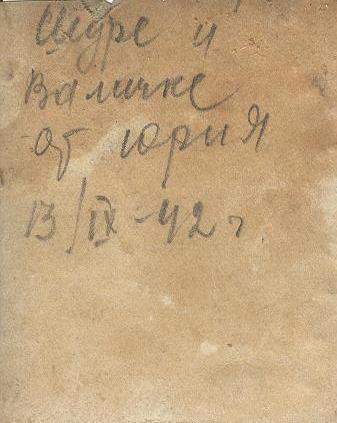 Шуре и
Валичке
от Юрия
13/IX-42 г